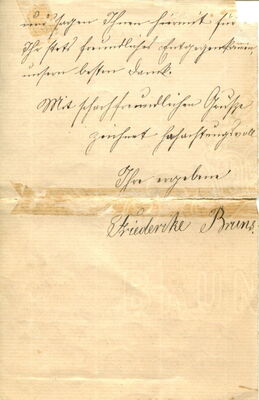 und sagen Ihnen hiermit für
Ihr stets freundliches Entgegenkommen
unsern besten Dank.
Mit freundlichen Grusse
zeichnet hochachtungsvoll
Ihre ergebene
Friedericke Bruns.